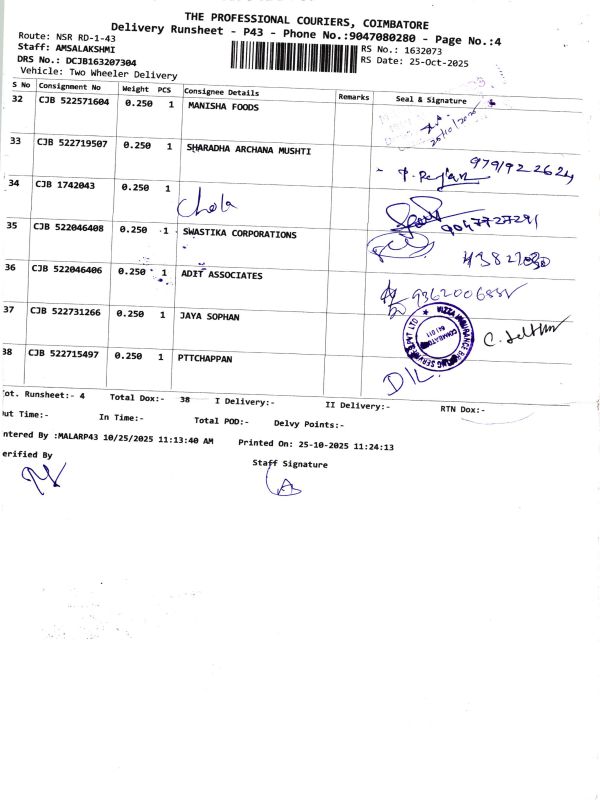 THE PROFESSIONAL COURIERS, COIMBATORE
Delivery Runsheet - P43 - Phone No.:9047080280 - Page No.:4
Route: NSR RD-1-43
Staff: AMSALAKSHMI
RS No.: 1632073
DRS No.: DCJB163207304
RS Date: 25-Oct-2025
Vehicle: Two Wheeler Delivery
S No Consignment No Weight PCS Consignee Details Remarks Seal & Signature
32 CJB 522571604 0.250 1 MANISHA FOODS
25/10/2025
33 CJB 522719507 0.250 1 SHARADHA ARCHANA MUSHTI
979192 2624
34 CJB 1742043 0.250 1
Chola
9047727291
35 CJB 522046408 0.250 1 SWASTIKA CORPORATIONS
36 CJB 522046406 0.250 1 ADIT ASSOCIATES
37 CJB 522731266 0.250 1 JAYA SOPHAN
VIZZA INSURANCE BROKING SERVICES PVT LTD
COIMBATORE
641 011
38 CJB 522715497 0.250 1 PTTCHAPPAN
DIL
ot. Runsheet:- 4 Total Dox:- 38 I Delivery:- II Delivery:- RTN Dox:-
ut Time:- In Time:- Total POD:- Delvy Points:-
ntered By :MALARP43 10/25/2025 11:13:40 AM Printed On: 25-10-2025 11:24:13
erified By
Staff Signature